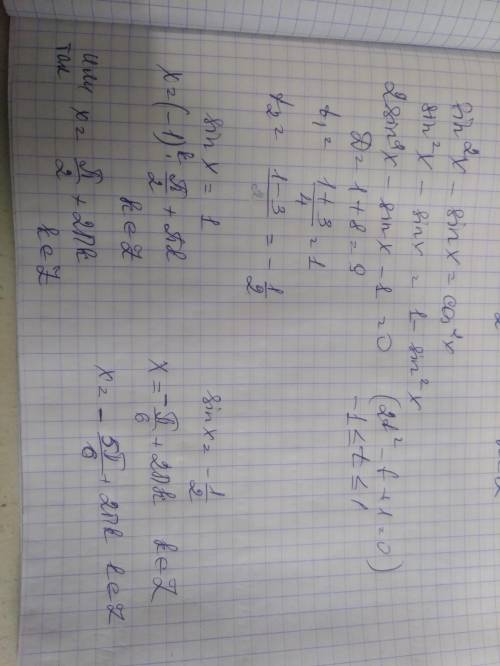 sin²x - sinx = cos²x
sin²x - sinx = 1 - sin²x
2sin²x - sinx - 1 = 0 (2t² - t + 1 = 0)
D = 1 + 8 = 9 -1 ≤ t ≤ 1
t₁ = (1+3)/4 = 1
t₂ = (1-3)/ = -1/2
sin x = 1
x = (-1)^k · π/2 + πk
k ∈ Z
или x = π/2 + 2πk
так k ∈ Z
sinx = -1/2
x = -π/6 + 2πk k ∈ Z
x = -5π/6 + 2πk k ∈ Z